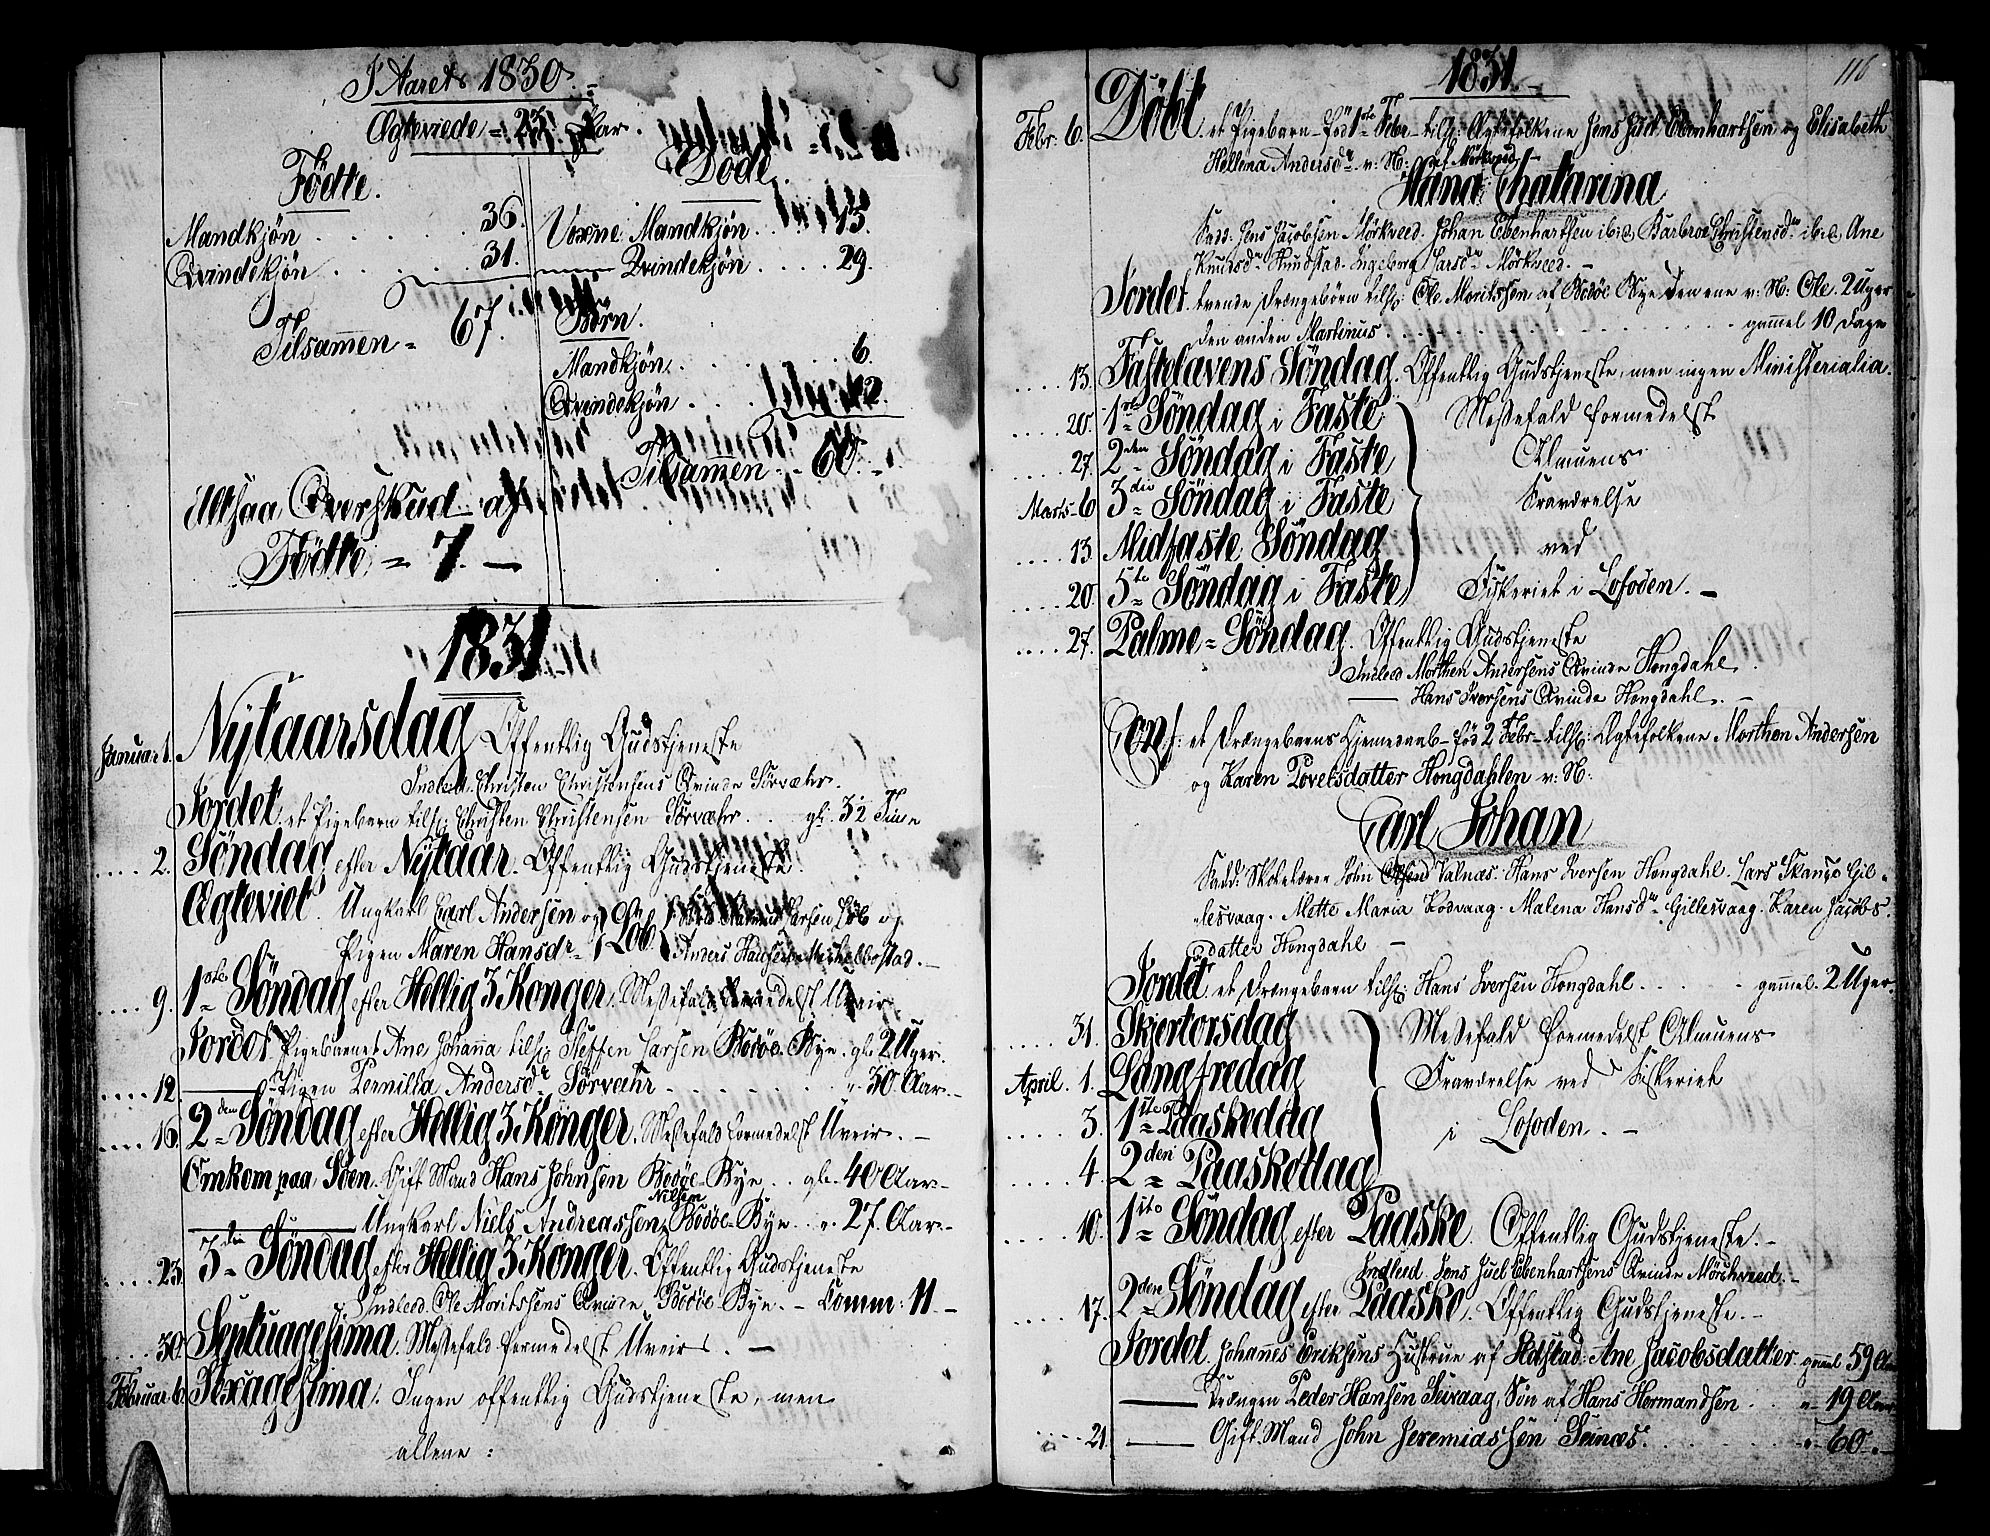 I Aaret 1830.
Ægteviede = 23 Par.
Födte.
Mandkjön . . . . . . 36.
Qvindekjön . . . . . . 31.
Tilsammen = 67.
Döde.
Voxne Mandkjøn . . 13.
Qvindekjøn . . . . 29.
Börn.
Mandkjön . . . . . 6.
Qvindekjön . . . . 12.
Tilsammen = 60.
Altsaa Overskud af
Födte = 7. —
1831
Januar 1. Nytaarsdag Offentlig Gudstjeneste
Indleed. Christen Christensens Qvinde Sörvæhr.
Jordet et Pigebarn tilh: Christen Christensen Sörvæhr . . gl: 3½ Time
. . . . 2. Söndag efter Nytaar. Offentlig Gudstjeneste.
Ægteviet. Ungkarl Carl Andersen og
Pigen Maren Hansdr Löb Larsen Löb og
Anders Hansen Mikkelbostad. —
. . . . 9. 1ste Söndag efter Hellig 3 Konger. Messefald formedelst Uveir
Jordet Pigebarnet Ane Johanna tilh: Steffen Larsen Bodöe Bye. gl. 2 Uger.
. . . . 12. — Pigen Pernilla Andersdr Sörvæhr . . . . " 30 Aar. —
. . . . 16. 2den Söndag efter Hellig 3 Konger. Messefald formedelst Uveir. —
Omkom paa Söen. Gift Mand Hans Johnsen Bodöe-Bye . . gl. 40 Aar —
— Ungkarl Niels Andreassen Nilsen Bodöe-Bye . . " 27 Aar —
. . . . 23. 3die Söndag efter Hellig 3 Konger. Offentlig Gudstjeneste
Indleed. Ole Moritssens Qvinde Bodöe Bye. — Comm: 11. —
. . . . 30. Septuagesima. Messefald formedelst Uveir. —
Februar 6. Sexagesima. Ingen offentlig Gudstjeneste, men
allene:
1831. 116
Febr: 6. Döbt et Pigebarn föd 1ste Febr tilh: Ægtefolkene Jens Juel Ebenhartsen og Elisabeth
Hellema Andersdr v: N: af Mörkved
Hana Chatarina
Fadd: Jens Jacobsen Mörkved. Johan Ebenhartsen ibid. Barbroe Christensdr ibid. Ane
Knudsdr Hundstad. Ingeborg Larsdr Mörkved. —
Jordet tvende Drængebörn tilh: Ole Moritssen af Bodöe Bye den ene v: N: Ole. 2 Uger
den anden Martinus . . . . . . gammel 10 Dage
. . . . 13. Fastelavens Söndag. Offentlig Gudstjeneste, men ingen Ministerialia.
. . . . 20. 1ste Söndag i Faste Messefald formedelst
. . . . 27. 2den Söndag i Faste Almuens
Marts 6 3die Söndag i Faste Fraværelse
. . . . 13 Midfaste Söndag ved
. . . . 20. 5te Söndag i Faste Fiskeriet i Lofoden. —
. . . . 27. Palme=Söndag. Offentlig Gudstjeneste
Indleed Morthen Andersens Qvinde Hongdahl.
— Hans Iversens Qvinde Hongdahl. —
Conf: et Drængebarns Hjemmedaab föd 2 Febr tilh: Ægtefolkene Morthen Andersen
og Karen Povelsdatter Hongdahlen v: N:
Carl Johan
Fadd: Skolelærer John Olsen Valnæs. Hans Iversen Hongdahl. Lars Skauge Gil-
lesvaag. Mette Maria Kodvaag. Malena Hansdr Gillesvaag. Karen Jacobs-
datter Hongdahl —
Jordet et Drængebarn tilh: Hans Iversen Hongdahl . . . . gammel 2 Uger.
. . . . 31. Skjertorsdag Messefald formedelst Almuens
April. 1. Langfredag Fraværelse ved Fiskeriet
. . . . 3. 1ste Paaskedag i Lofoden. —
. . . . 4. 2den Paaskedag
. . . . 10. 1ste Söndag efter Paaske. Offentlig Gudstjeneste. —
Indleed. Jens Juel Ebenhartsens Qvinde Mörchveed. —
. . . . 17. 2den Söndag efter Paaske. Offentlig Gudstjeneste. —
Jordet. Johannes Eriksens Hustrue af Hetstad. Ane Jacobsdatter gaml 59 Aar
— Drængen Peder Hansen Seivaag, Sön af Hans Hermandsen . . " 19 Aar
. . . . 21. — Gift Mand John Jeremiassen Seinæs . . . . " 60. —